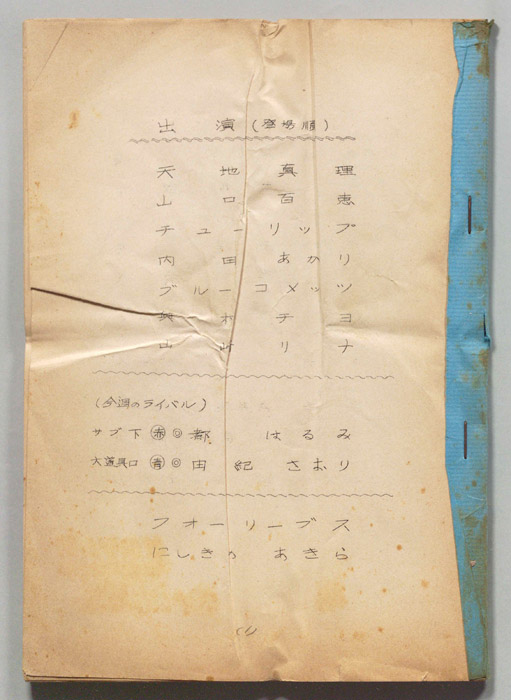 出演(登場順)
天地真理
山口百恵
チューリップ
内田あかり
ブルーコメッツ
奥村チヨ
山崎リナ
(今週のライバル)
サブ下 赤 ◎ 都はるみ
大道具口 青 ◎ 由紀さおり
フォーリーブス
にしきのあきら
(1)